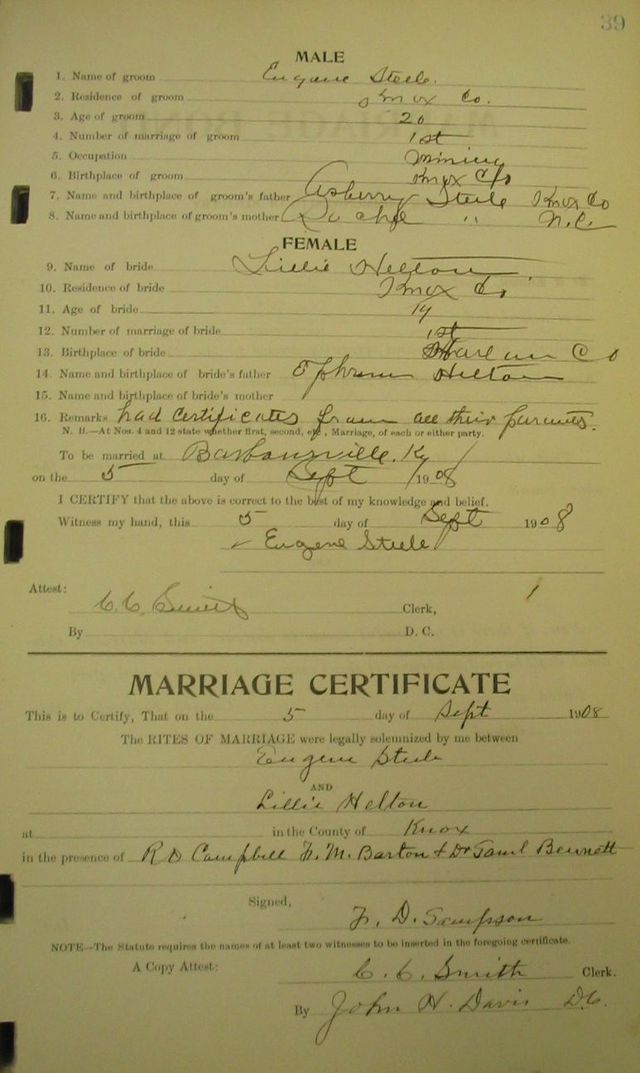 39
MALE
1. Name of groom Eugene Steele.
2. Residence of groom Knox Co.
3. Age of groom 20
4. Number of marriage of groom 1st
5. Occupation Mining
6. Birthplace of groom Knox Co
7. Name and birthplace of groom's father Asberry Steele Knox Co
8. Name and birthplace of groom's mother Rachel " N.C.
FEMALE
9. Name of bride Lillie Helton
10. Residence of bride Knox Co
11. Age of bride
12. Number of marriage of bride 1st
13. Birthplace of bride Harlan Co
14. Name and birthplace of bride's father Ephram Helton
15. Name and birthplace of bride's mother
16. Remarks had certificates from all their parents.
N. B.—At Nos. 4 and 12 state whether first, second, etc., Marriage, of each or either party.
To be married at Barbourville, Ky
on the 5 day of Sept 1908
I CERTIFY that the above is correct to the best of my knowledge and belief.
Witness my hand, this 5 day of Sept 1908
Eugene Steele
Attest:
C. C. Smith Clerk,
By D. C.
MARRIAGE CERTIFICATE
This is to Certify, That on the 5 day of Sept 1908
The RITES OF MARRIAGE were legally solemnized by me between
Eugene Steele
AND
Lillie Helton
at in the County of Knox
in the presence of R D Campbell F. M. Barton & Dr Saml Bennett
Signed,
F. D. Sampson
NOTE—The Statute requires the names of at least two witnesses to be inserted in the foregoing certificate.
A Copy Attest: C. C. Smith Clerk.
By John H. Davis D.C.